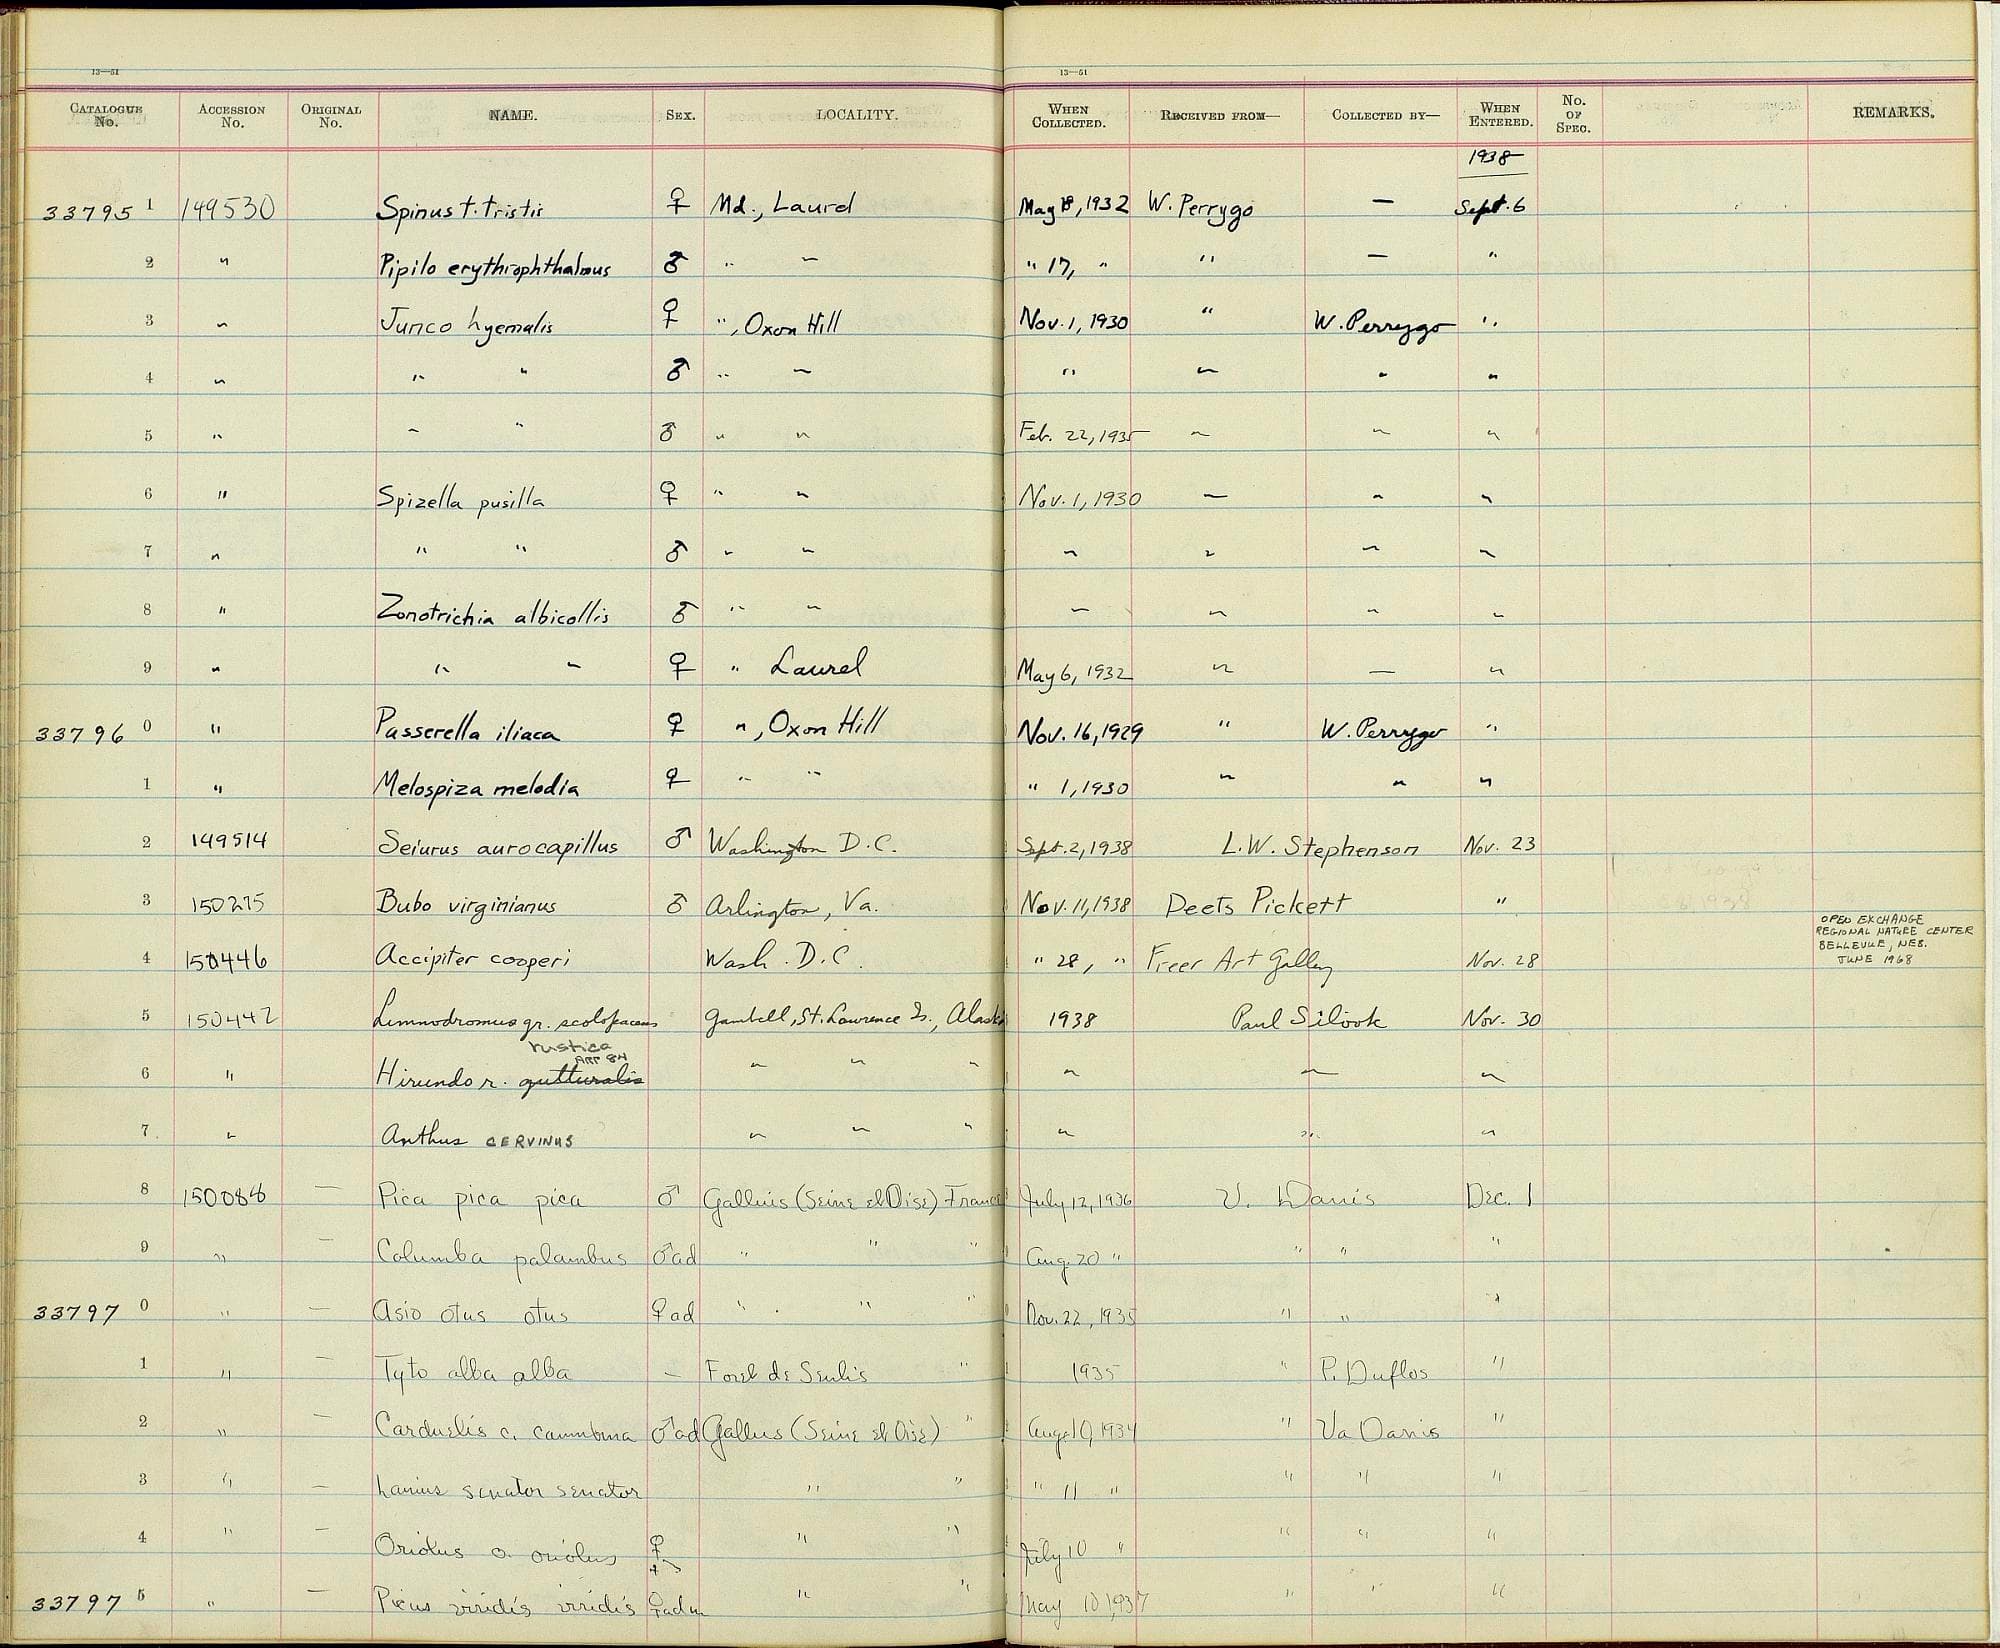 13—51 13—51
CATALOGUE No. ACCESSION No. ORIGINAL No. NAME. SEX. LOCALITY. WHEN COLLECTED. RECEIVED FROM— COLLECTED BY— WHEN ENTERED. No. OF SPEC. REMARKS.
1938
33795 1 149530 Spinus t. tristis ♀ Md., Laurel May 18, 1932 W. Perrygo — Sept. 6
2 " Pipilo erythrophthalmus ♂ " " " 17, " " — "
3 " Junco hyemalis ♀ ", Oxon Hill Nov. 1, 1930 " W. Perrygo "
4 " " " ♂ " " " " " "
5 " " " ♂ " " Feb. 22, 1935 " " "
6 " Spizella pusilla ♀ " " Nov. 1, 1930 " " "
7 " " " ♂ " " " " " "
8 " Zonotrichia albicollis ♂ " " " " " "
9 " " " ♀ " Laurel May 6, 1932 " — "
33796 0 " Passerella iliaca ♀ ", Oxon Hill Nov. 16, 1929 " W. Perrygo "
1 " Melospiza melodia ♀ " " " 1, 1930 " " "
2 149514 Seiurus aurocapillus ♂ Washington D.C. Sept. 2, 1938 L.W. Stephenson Nov. 23
3 150275 Bubo virginianus ♂ Arlington, Va. Nov. 11, 1938 Deets Pickett "
OPEN EXCHANGE
REGIONAL NATURE CENTER
BELLEVUE, NEB.
JUNE 1968
4 150446 Accipiter cooperi Wash. D.C. " 28, " Freer Art Gallery Nov. 28
5 150442 Limnodromus gr. scolopaceus Gambell, St. Lawrence Is., Alaska 1938 Paul Silook Nov. 30
rustica
6 " Hirundo r. gutturalis " " " " " "
7 " Anthus CERVINUS " " " " " "
8 150088 — Pica pica pica ♂ Galluis (Seine et Oise) France July 12, 1936 V. Danis Dec. 1
9 " — Columba palambus ♂ad " " " Aug. 20 " " " "
33797 0 " — Asio otus otus ♀ad " " " Nov. 22, 1935 " " "
1 " — Tyto alba alba — Foret de Senlis " 1935 " P. Duflos "
2 " — Carduelis c. cannabina ♂ad Galluis (Seine et Oise) " Aug. 10, 1934 " Va Danis "
3 " — Lanius senator senator " " " 11 " " " "
4 " — Oriolus o. oriolus ♀ " " July 10 " " " "
33797 5 " — Picus viridis viridis ♀ " " May 10 1937 " " "